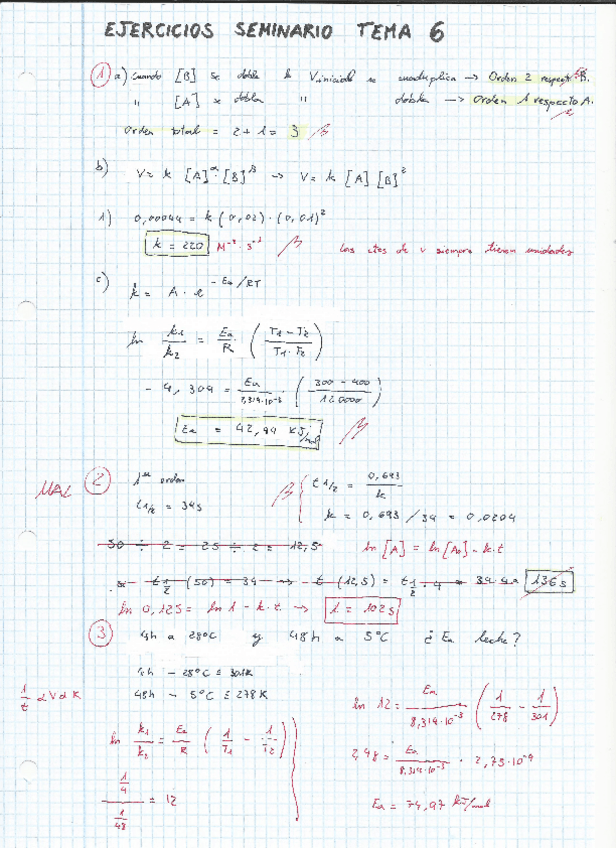 EJERCICIOS SEMINARIO TEMA 6
1 a) Cuando [B] se dobla la Vinicial se cuadruplica → Orden 2 respecto B.
" [A] se dobla " dobla → Orden 1 respecto A.
Orden total = 2 + 1 = 3
b) V = k [A]^α · [B]^β → V = k [A] [B]²
1) 0,00044 = k (0,02) · (0,01)²
k = 220 M⁻² · s⁻¹ Las ctes de v siempre tienen unidades
c) k = A · e^(-Ea/RT)
ln k1/k2 = Ea/R · (T1 - T2 / T1 · T2)
(300 - 400 / 120000)
Ea = 42,94 KJ/mol
MAL 2 1er orden t1/2 = 0,693 / k
t1/2 = 34s k = 0,693 / 34 = 0,0204
50 ÷ 2 = 25 ÷ 2 = 12,5 ln [A] = ln [A0] - k·t
t1/2 (50) = 34 → t (12,5) = t1/2 · 4 = 136 s
ln 0,125 = ln 1 - k·t → t = 102s
3 4h a 28ºC y 48h a 5ºC ¿Ea leche?
4h - 28ºC ≡ 301K
1/t α V α K 48h - 5ºC ≡ 278K
ln 12 = Ea / 8,314·10⁻³ (1/278 - 1/301)
ln k1/k2 = Ea/R (1/T1 - 1/T2)
2,48 = Ea / 8,314·10⁻³ · 2,75·10⁻⁴
1/4 / 1/48 = 12
Ea = 74,97 kJ/mol